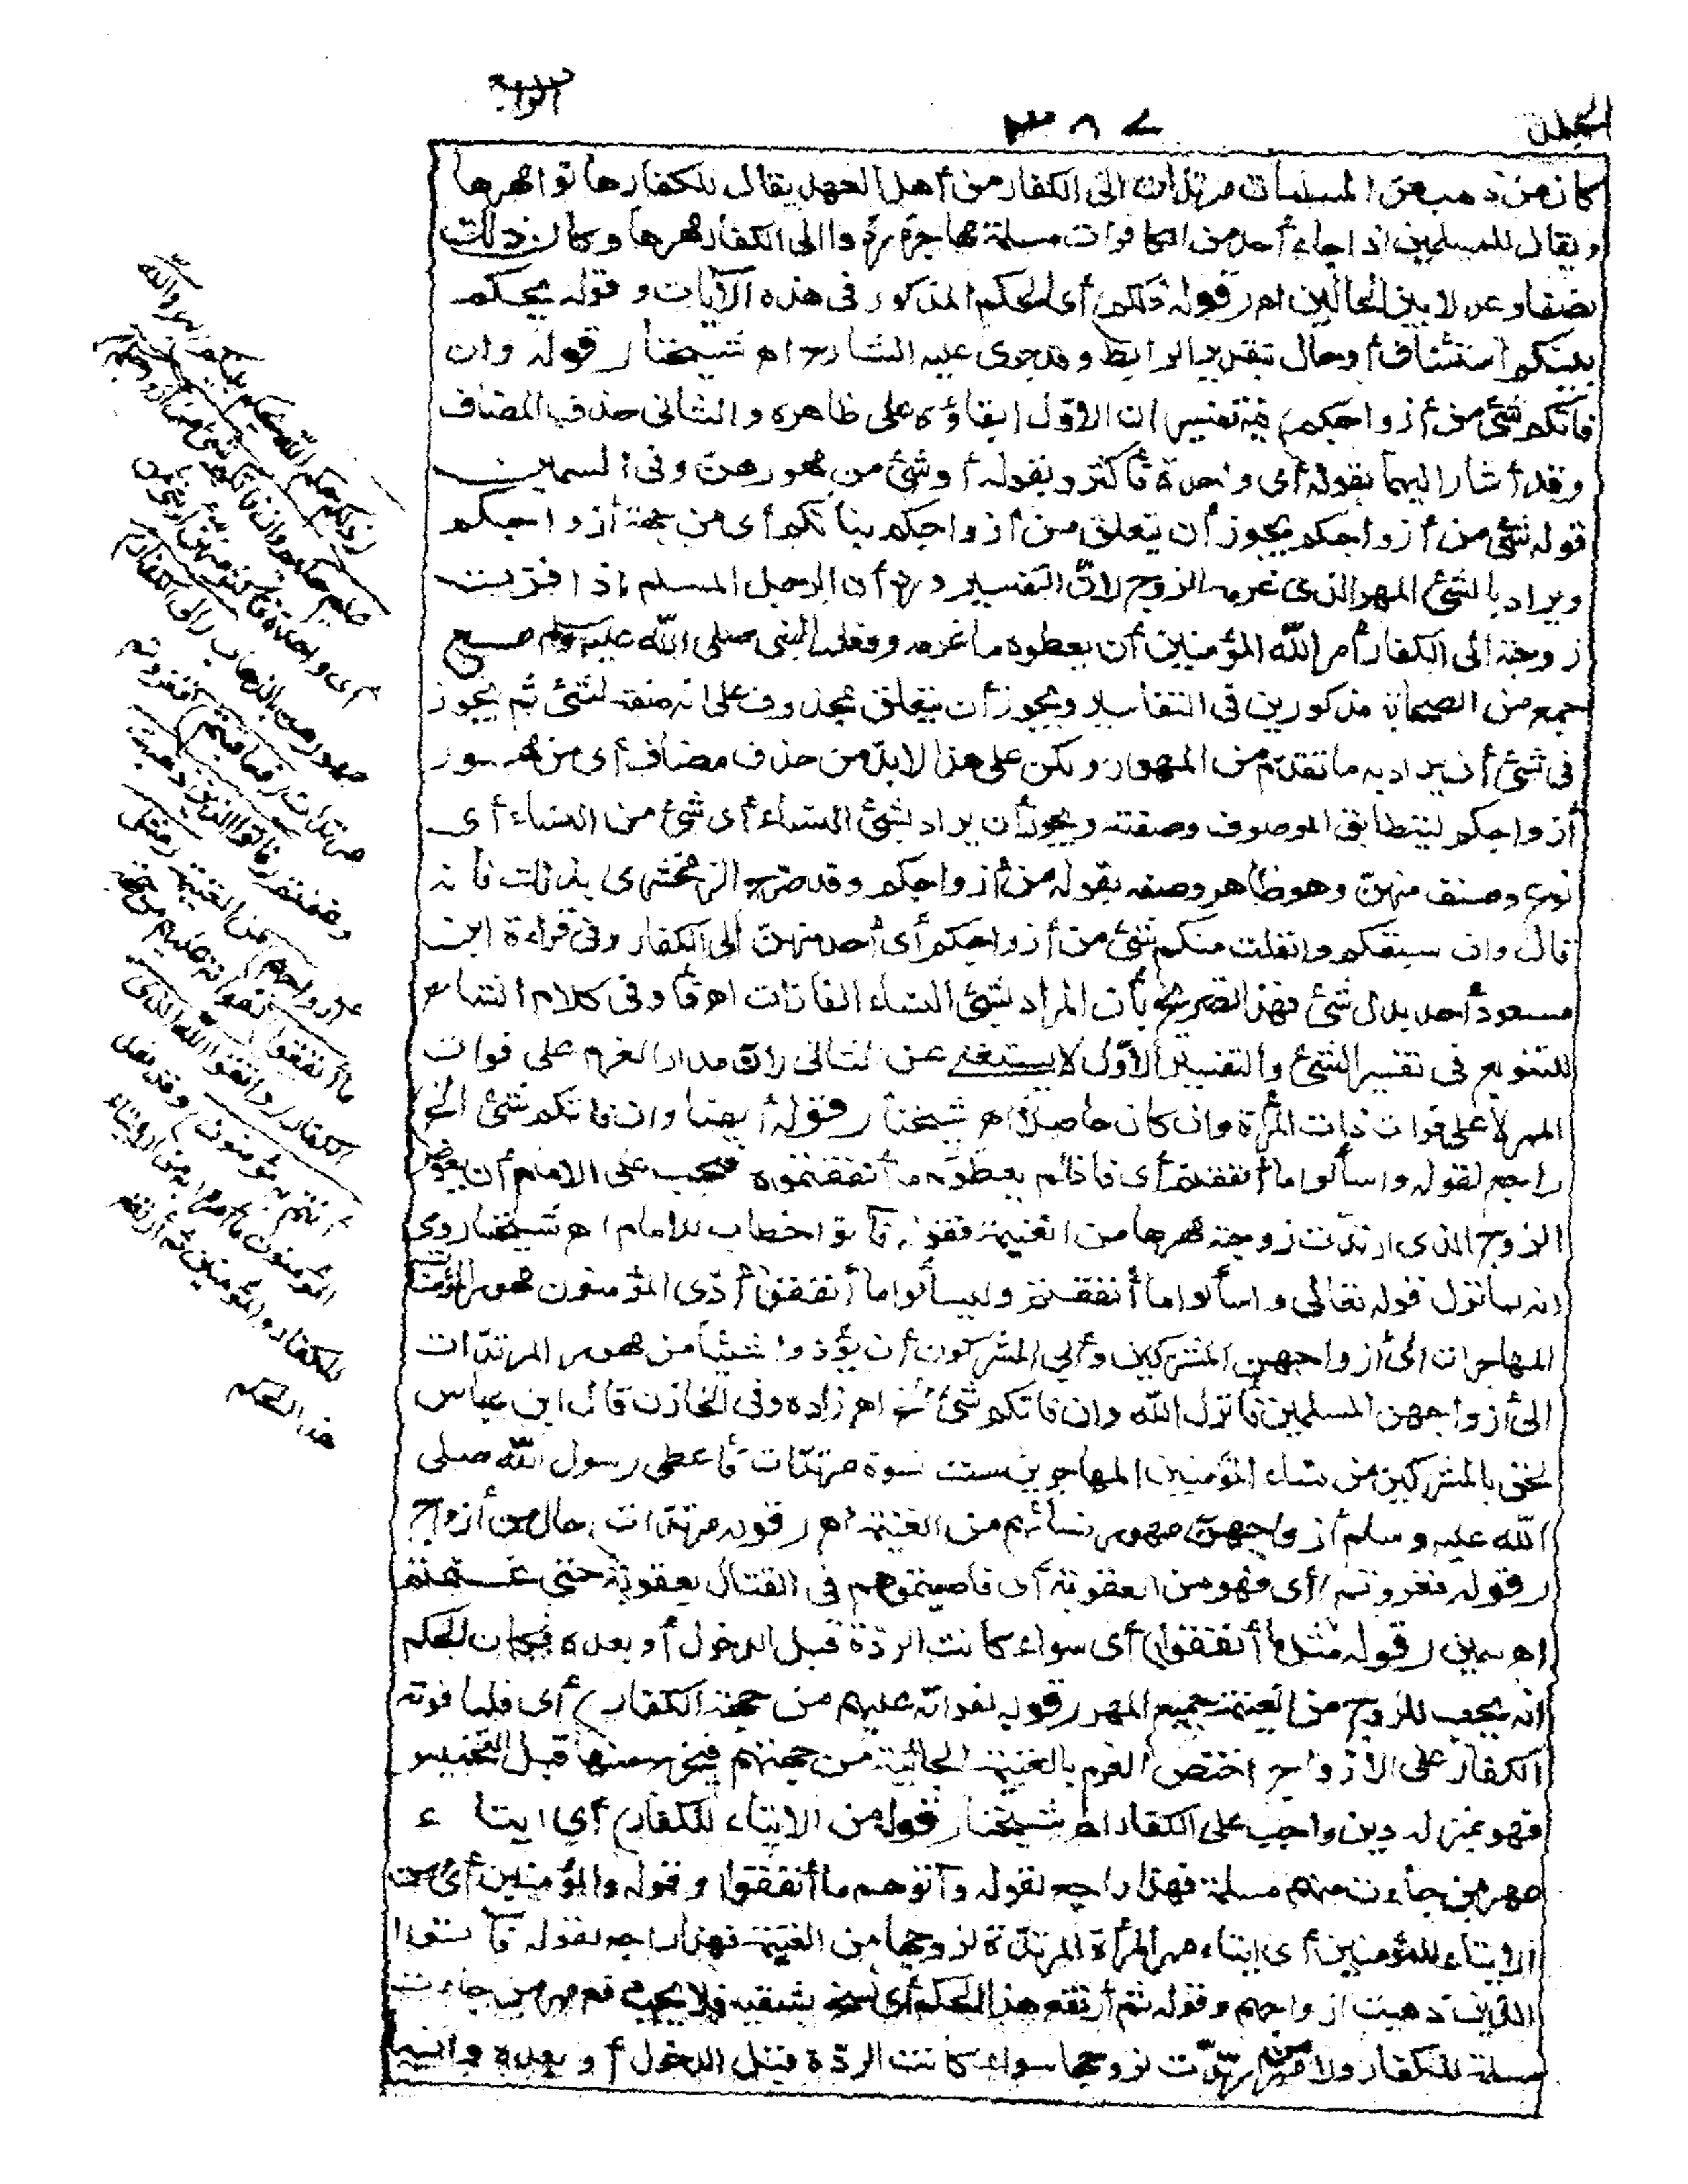 الجمل
٣٨٧
الرابع
كان من ذهب من المسلمات مرتدات الى الكفار من أهل العهد يقال للكفار هاتوا مهرها
ويقال للمسلمين اذا جاء أحد من الكافرات مسلمة مهاجرة ردوا الى الكفار مهرها وكان ذلك
نصفا وعدلا بين الحالين اهـ (قوله ذلكم) أى الحكم المذكور فى هذه الآيات وقوله يحكم
بينكم استئناف أوحال بتقدير الرابط وقد جرى عليه الشارح اهـ شيخنا (قوله وان
فاتكم شئ من أزواجكم) فيه تفسيران الاوّل ابقاؤه على ظاهره والثانى حذف المضاف
وقد أشار اليهما بقوله أى واحدة فأكثر وبقوله أوشئ من مهورهن وفى السمين
قوله شئ من أزواجكم يجوز أن يتعلق من أزواجكم بفاتكم أى من جهة أزواجكم
ويراد بالشئ المهر الذى غرمه الزوج لانّ التفسير ورد أن الرجل المسلم اذا فرّت
زوجته الى الكفار أمر الله المؤمنين أن يعطوه ما غرمه وفعله النبى صلى الله عليه وسلم مع
جمع من الصحابة مذكورين فى التفاسير ويجوز أن يتعلق بمحذوف على انه صفة لشئ ثم يجوز
فى شئ أن يراد به ما تقدّم من المهور ولكن على هذا لابدّ من حذف مضاف أى من مهور
أزواجكم ليتطابق الموصوف وصفته ويجوز أن يراد بشئ النساء أى شئ من النساء أى
نوع وصنف منهنّ وهو ظاهر وصفه بقوله من أزواجكم وقد صرّح الزمخشرى بذلك فانه
قال وان سبقكم وانفلت منكم شئ من أزواجكم أى أحد منهنّ الى الكفار وفى قراءة ابن
مسعود أحد بدل شئ فهذا تصريح بأن المراد بشئ النساء الفارّات اهـ وفى كلام الشارح
للتنويع فى تفسير الشئ والتفسير الاوّل لا يستغنى عن الثانى لانّ مدار الغرم على فوات
المهر لا على فوات ذات المرأة وان كان حاصلا اهـ شيخنا (قوله أيضا وان فاتكم شئ الخ)
راجع لقوله واسألوا ما أنفقتم أى فاذا لم يعطوه ما أنفقتموه فيجب على الامام أن يعوّض
الزوج الذى ارتدّت زوجته مهرها من الغنيمة فقوله فآتوا خطاب للامام اهـ شيخنا روى
انه لما نزل قوله تعالى واسألوا ما أنفقتم وليسألوا ما أنفقوا أدّى المؤمنون مهور المؤمنات
المهاجرات الى أزواجهن المشركين وأبى المشركون أن يؤدوا شيئا من مهور المرتدّات
الى أزواجهن المسلمين فأنزل الله وان فاتكم شئ الخ اهـ زاده وفى الخازن قال ابن عباس
لحق بالمشركين من نساء المؤمنين المهاجرين ست نسوة مرتدّات فأعطى رسول الله صلى
الله عليه وسلم أزواجهنّ مهور نسائهم من الغنيمة اهـ (قوله مرتدّات) حال من أزواج
(قوله فغزوتم) أى فهو من العقوبة أى فاصبتموهم فى القتال بعقوبة حتى غنمتم
اهـ سمين (قوله مثل ما أنفقوا) أى سواء كانت الردّة قبل الدخول أو بعده فكان الحكم
انه يجب للزوج من الغنيمة جميع المهر (قوله لفواته عليهم من جهة الكفار) أى فلما فوته
الكفار على الازواج اختص الغرم بالغنيمة الجائية من جهتهم فيخرج منها قبل التخميس
فهو بمنزلة دين واجب على الكفار اهـ شيخنا (قوله من الايتاء للكفار) أى ايتاء
مهر من جاءت منهم مسلمة فهذا راجع لقوله وآتوهم ما أنفقوا وقوله والمؤمنين أى من
الايتاء للمؤمنين أى ايتاء مهر المرأة المرتدّة لزوجها من الغنيمة فهذا راجع لقوله فآتوا
الذين ذهبت أزواجهم وقوله ثم ارتفع هذا الحكم أى نسخ بشقيه فلا يجب دفع مهر من جاءت
مسلمة للكفار ولا مهر من ارتدّت لزوجها سواء كانت الردّة قبل الدخول أو بعده وانما
ذلكم حكم الله يحكم بينكم والله
عليم حكيم وان فاتكم شئ من أزواجكم
أى واحدة فأكثر منهن أو شئ من
مهورهن بالذهاب (الى الكفار)
مرتدات (فعاقبتم) فغزوتم
وغنمتم (فآتوا الذين ذهبت
أزواجهم) من الغنيمة (مثل
ما أنفقوا) لفواته عليهم من جهة
الكفار (واتقوا الله الذى
أنتم به مؤمنون) وقد فعل
المؤمنون ما أمروا به من الايتاء
للكفار والمؤمنين ثم ارتفع
هذا الحكم